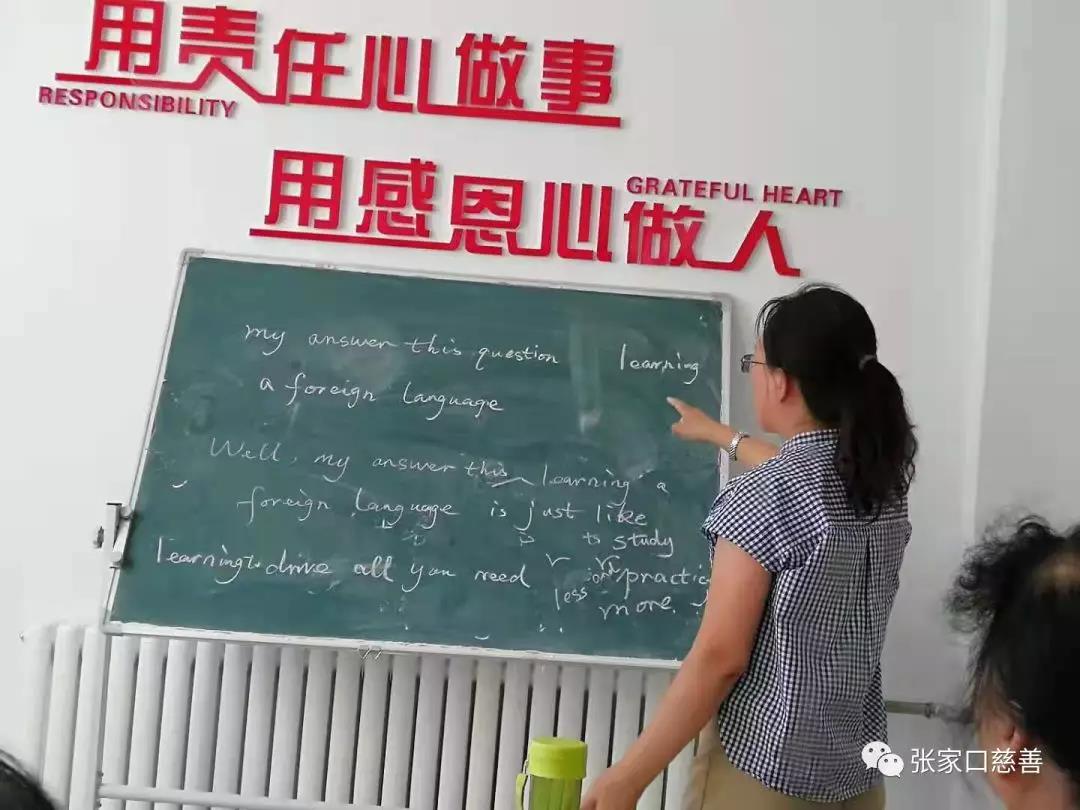 用责任心做事
RESPONSIBILITY
用感恩心做人
GRATEFUL HEART
my answer this question learning
a foreign language
Well, my answer this learning a
foreign language is just like
to study
learning to drive all you need less or practic
more.
张家口慈善